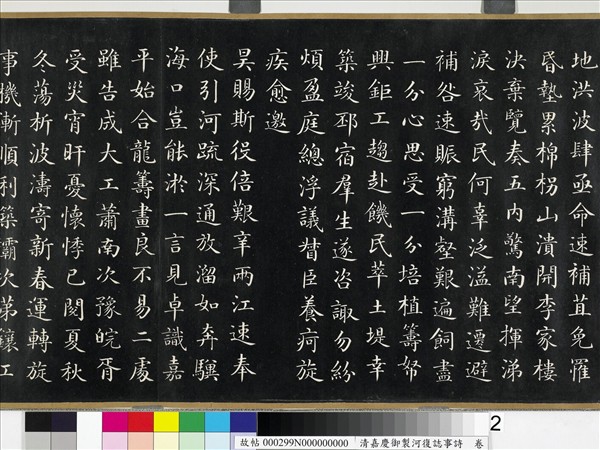 地洪波肆亟命速補苴免罹
昏墊累棉柺山潰開李家樓
決棄覽奏五內驚南望揮涕
淚哀哉民何辜泛溢難遷避
補咎速賑窮溝壑艱遍飼盡
一分心思受一分培植籌帑
興鉅工趨赴饑民萃土堤幸
築竣邳宿羣生遂咨諏勿紛
煩盈庭總浮議督臣養疴旋
疾愈邀
昊賜斯役倍艱辛兩江速奉
使引河疏深通放溜如奔驥
海口豈能淤一言見卓識嘉
平始合龍籌畫良不易二處
雖告成大工蕭南次豫皖胥
受災宵旰憂懷悸已閱夏秋
冬蕩析波濤寄新春運轉旋
事機漸順利築壩次第鑲工
2
故帖 000299N000000000 清嘉慶御製河復誌事詩 卷